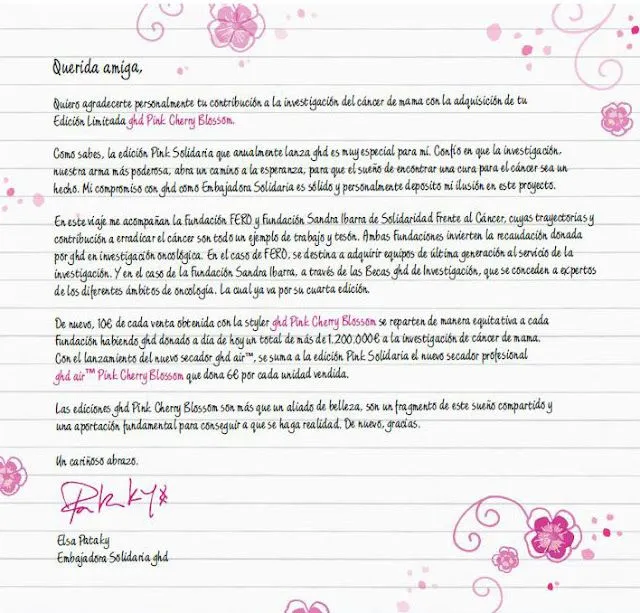 Querida amiga,
Quiero agradecerte personalmente tu contribución a la investigación del cáncer de mama con la adquisición de tu
Edición Limitada ghd Pink Cherry Blossom.
Como sabes, la edición Pink Solidaria que anualmente lanza ghd es muy especial para mí. Confío en que la investigación,
nuestra arma más poderosa, abra un camino a la esperanza, para que el sueño de encontrar una cura para el cáncer sea un
hecho. Mi compromiso con ghd como Embajadora Solidaria es sólido y personalmente deposito mi ilusión en este proyecto.
En este viaje me acompañan la Fundación FERO y Fundación Sandra Ibarra de Solidaridad Frente al Cáncer, cuyas trayectorias y
contribución a erradicar el cáncer son todo un ejemplo de trabajo y tesón. Ambas Fundaciones invierten la recaudación donada
por ghd en investigación oncológica. En el caso de FERO, se destina a adquirir equipos de última generación al servicio de la
investigación. Y en el caso de la Fundación Sandra Ibarra, a través de las Becas ghd de Investigación, que se conceden a expertos
de los diferentes ámbitos de oncología. La cual ya va por su cuarta edición.
De nuevo, 10€ de cada venta obtenida con la styler ghd Pink Cherry Blossom se reparten de manera equitativa a cada
Fundación habiendo ghd donado a día de hoy un total de más de 1.200.000€ a la investigación de cáncer de mama.
Con el lanzamiento del nuevo secador ghd air™, se suma a la edición Pink Solidaria el nuevo secador profesional
ghd air™ Pink Cherry Blossom que dona 6€ por cada unidad vendida.
Las ediciones ghd Pink Cherry Blossom son más que un aliado de belleza, son un fragmento de este sueño compartido y
una aportación fundamental para conseguir a que se haga realidad. De nuevo, gracias.
Un cariñoso abrazo.
Pataky
Elsa Pataky
Embajadora Solidaria ghd